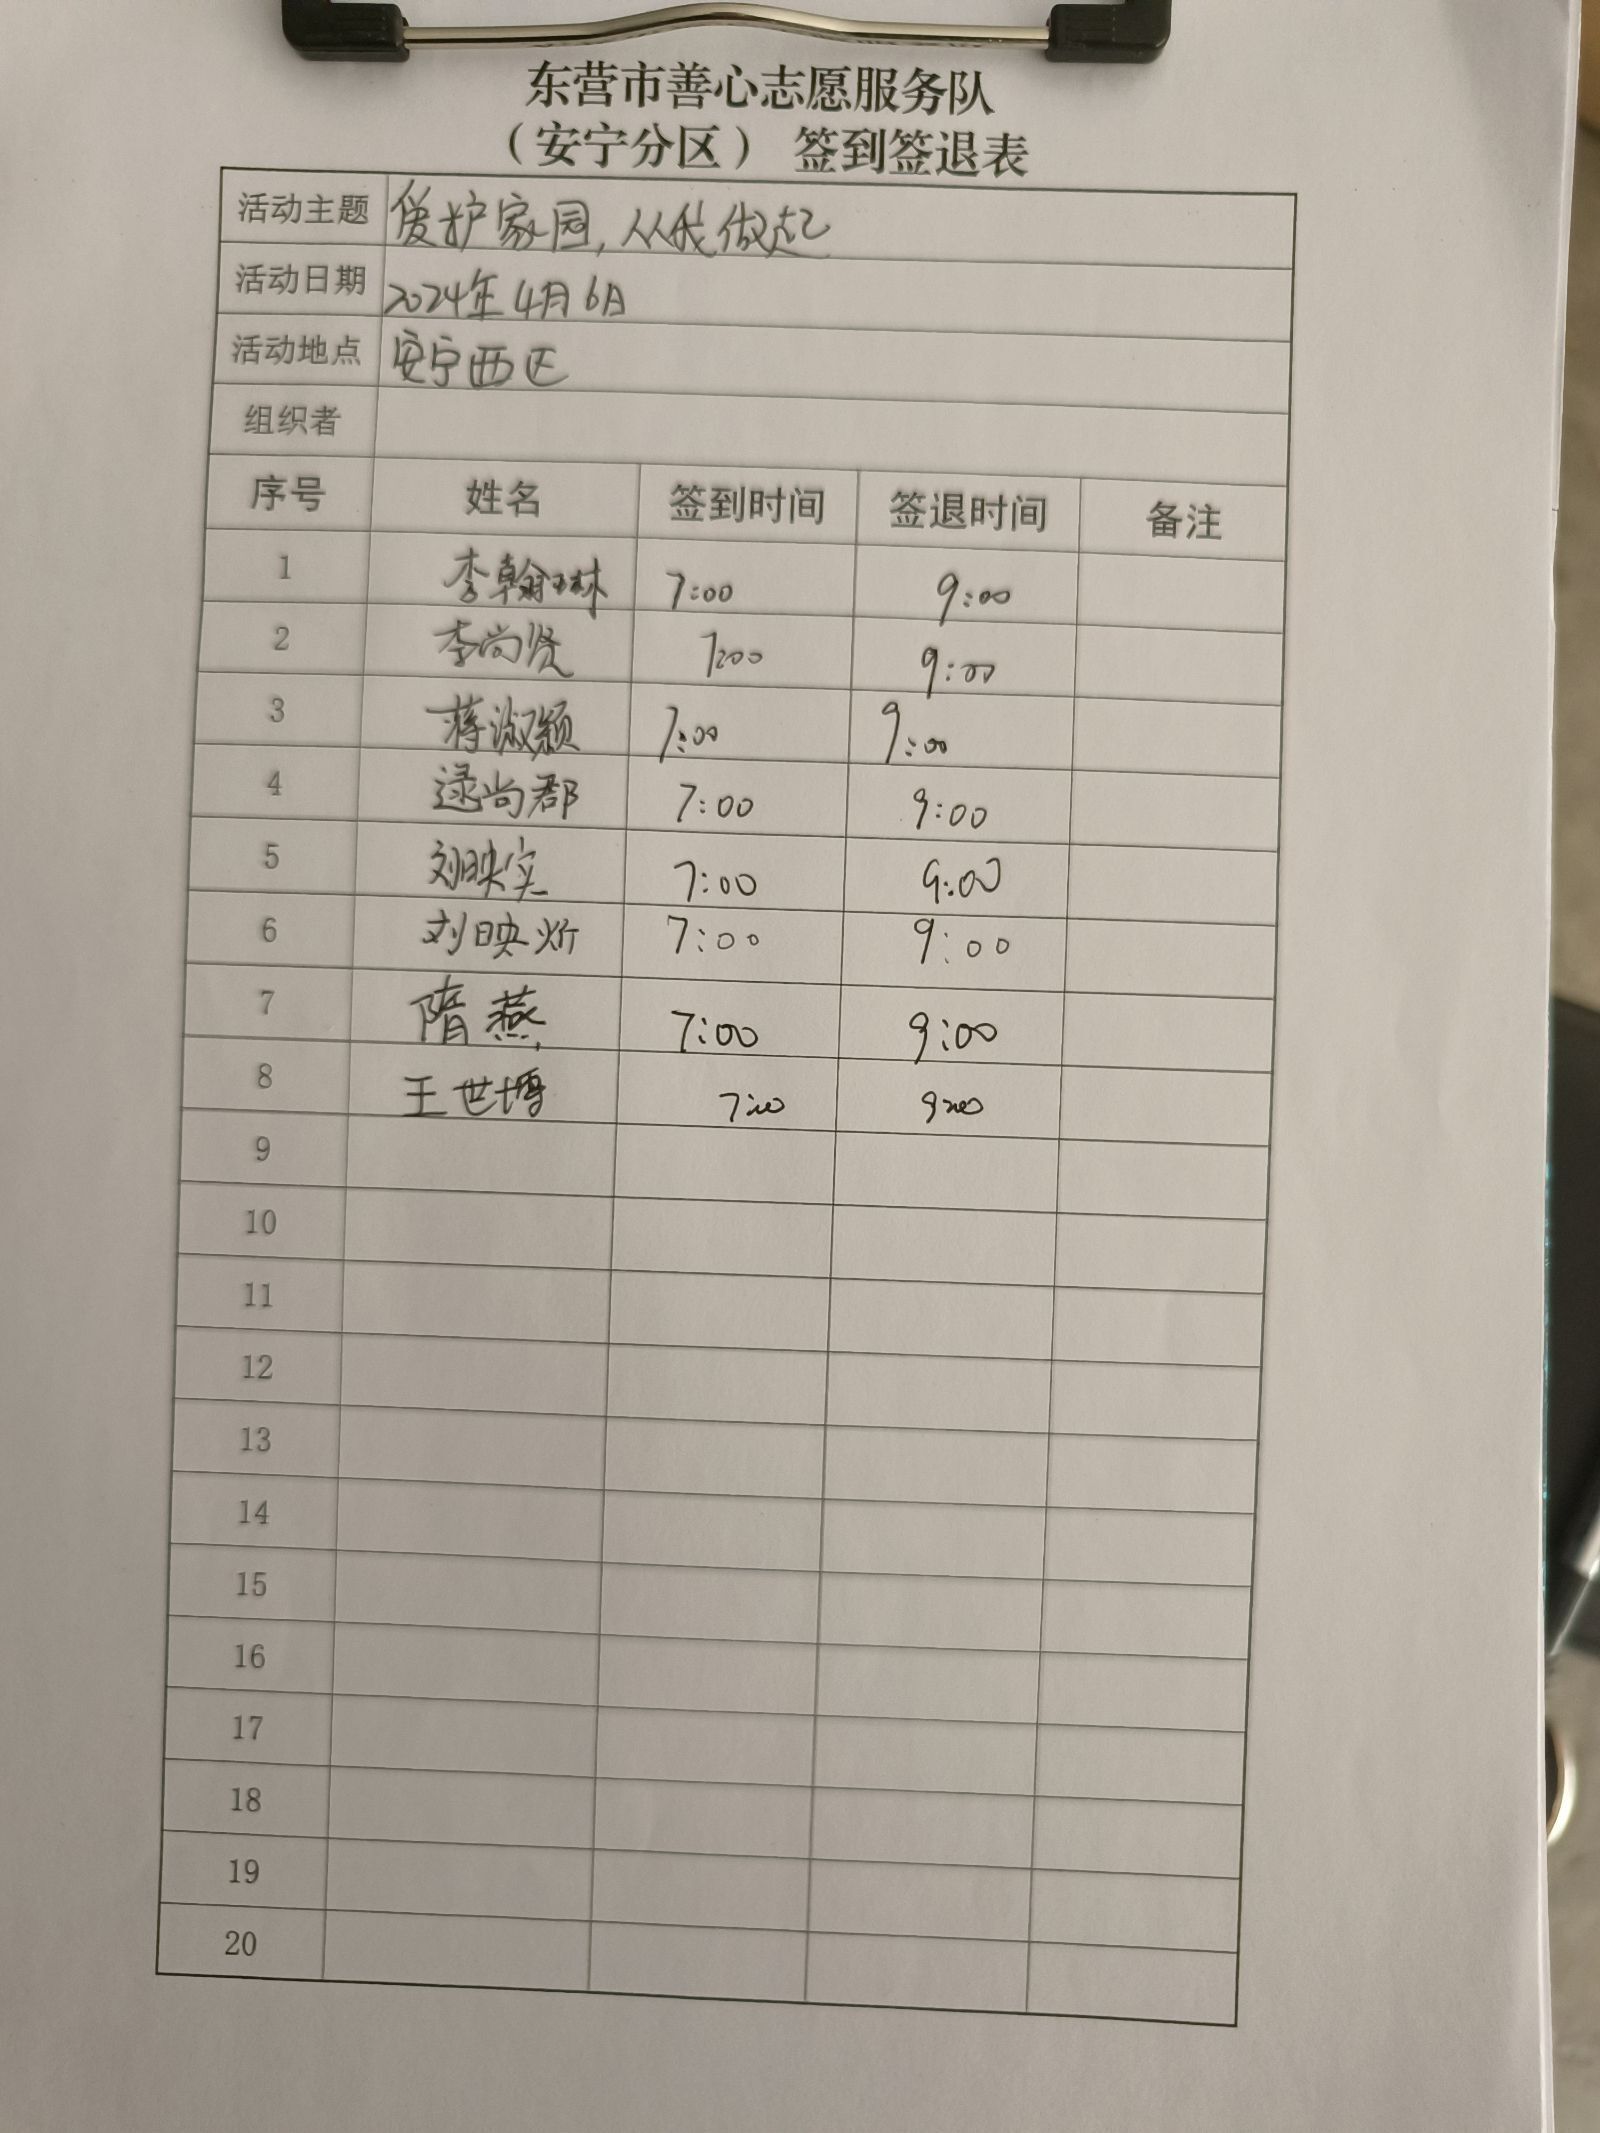 东营市善心志愿服务队
（安宁分区） 签到签退表
活动主题 爱护家园,从我做起
活动日期 2024年4月6日
活动地点 安宁西区
组织者
序号 姓名 签到时间 签退时间 备注
1 李翰琳 7:00 9:00
2 李尚贤 7:00 9:00
3 蒋淑颖 7:00 9:00
4 逯尚郡 7:00 9:00
5 刘映实 7:00 9:00
6 刘映炘 7:00 9:00
7 隋燕 7:00 9:00
8 王世博 7:00 9:00
9
10
11
12
13
14
15
16
17
18
19
20